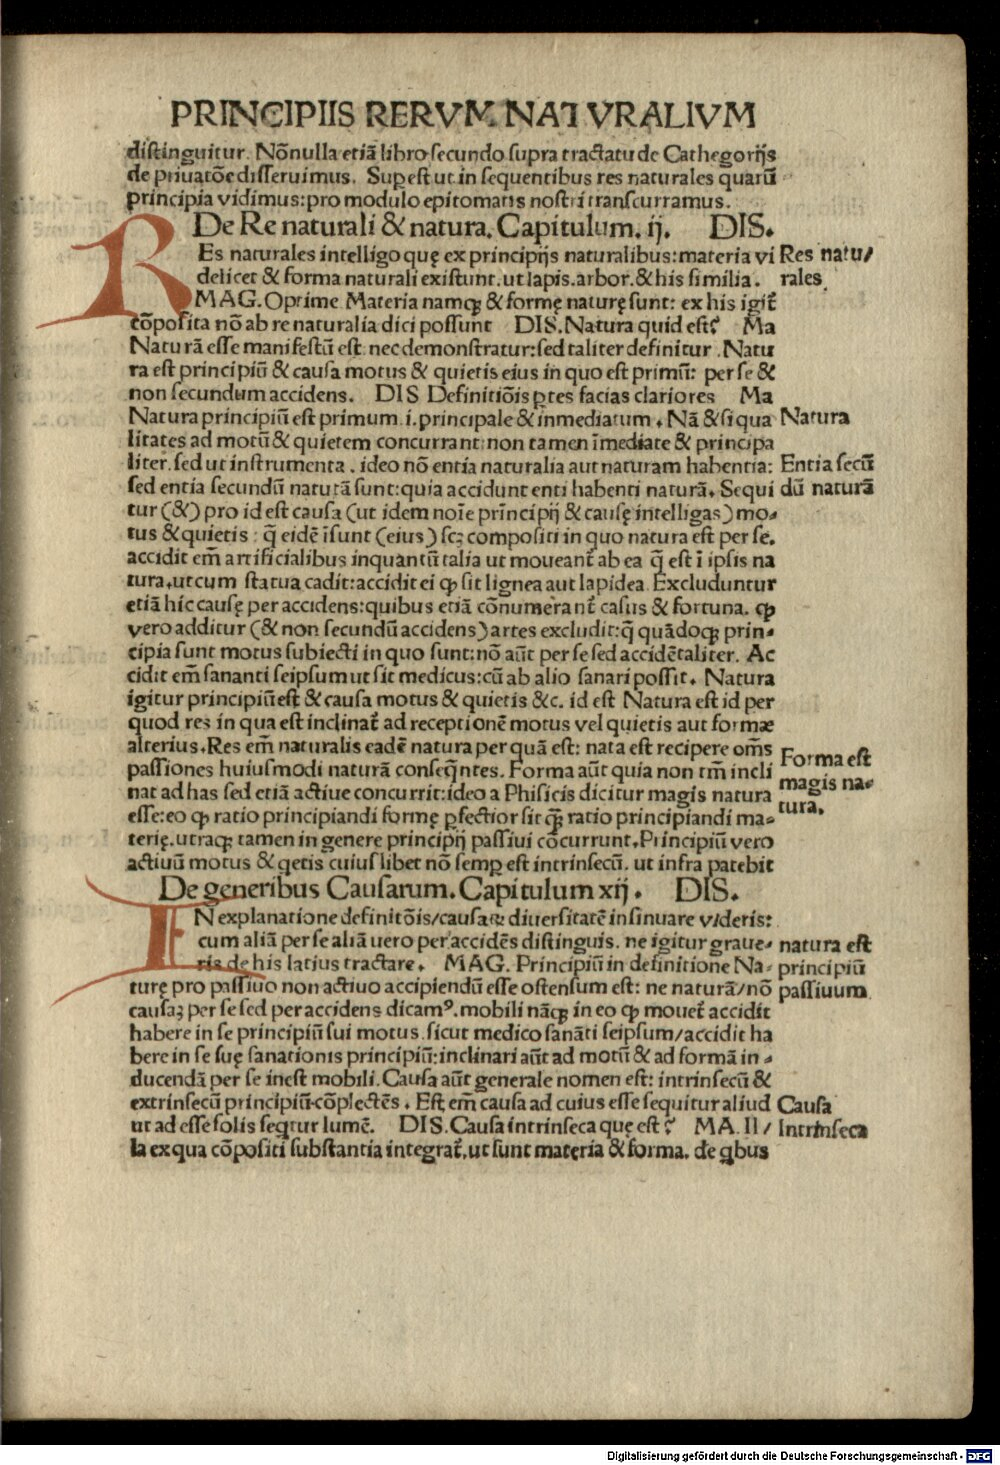 PRINCIPIIS RERVM NATVRALIVM
distinguitur. Nõnulla etiã libro secundo supra tractatu de Cathegorijs
de priuatõe disseruimus. Supest ut in sequentibus res naturales quarũ
principia vidimus: pro modulo epitomatis nostri transcurramus.
De Re naturali & natura. Capitulum. ij. DIS.
REs naturales intelligo quę ex principijs naturalibus: materia vi
delicet & forma naturali existunt. ut lapis. arbor. & his similia.
MAG. Optime. Materia namqꝫ & formę naturę sunt: ex his igit̃
cõposita nõ ab re naturalia dici possunt DIS. Natura quid est? Ma
Naturã esse manifestũ est nec demonstratur: sed taliter definitur. Natu
ra est principiũ & causa motus & quietis eius in quo est primũ: per se &
non secundum accidens. DIS Definitiõis ptes facias clariores Ma
Natura principiũ est primum .i. principale & inmediatum. Nã & si qua
litates ad motũ & quietem concurrant: non tamen ĩmediate & principa
liter. sed ut instrumenta. ideo nõ entia naturalia aut naturam habentia:
sed entia secundũ naturã sunt: quia accidunt enti habenti naturã. Sequi
tur (&) pro id est causa (ut idem noĩe principij & causę intelligas) mo-
tus & quietis: q̃ eidẽ ĩsunt (eius) scꝫ compositi in quo natura est per se.
accidit em̃ artificialibus inquantũ talia ut moueant̃ ab ea q̃ est ĩ ipsis na
tura. ut cum statua cadit: accidit ei ꝙ sit lignea aut lapidea. Excluduntur
etiã hic causę per accidens: quibus etiã cõnumerant̃ casus & fortuna. ꝙ
vero additur (& non secundũ accidens) artes excludit: q̃ quãdoqꝫ prin-
cipia sunt motus subiecti in quo sunt: nõ aũt per se sed accidẽtaliter. Ac
cidit em̃ sananti seipsum ut sit medicus: cũ ab alio sanari possit. Natura
igitur principiũ est & causa motus & quietis &c. id est Natura est id per
quod res in qua est inclinat̃ ad receptionẽ motus vel quietis aut formæ
alterius. Res em̃ naturalis eadẽ natura per quã est: nata est recipere om̃s
passiones huiusmodi naturã conseq̃ntes. Forma aũt quia non tm̃ incli
nat ad has sed etiã actiue concurrit: ideo a Phisicis dicitur magis natura
esse: eo ꝙ ratio principiandi formę pfectior sit q̃ꝫ ratio principiandi ma-
terię. utraqꝫ tamen in genere principij passiui cõcurrunt. Principiũ vero
actiuũ motus & qetis cuiuslibet nõ semp est intrinsecũ. ut infra patebit
De generibus Causarum. Capitulum xij. DIS.
IN explanatione definitõis/causaꝝ diuersitatẽ insinuare videris:
cum aliã per se aliã uero per accidẽs distinguis. ne igitur graue-
ris de his latius tractare. MAG. Principiũ in definitione Na-
turę pro passiuo non actiuo accipiendũ esse ostensum est: ne naturã/nõ
causaꝫ per se sed per accidens dicamꝰ. mobili nãqꝫ in eo ꝙ mouet̃ accidit
habere in se principiũ sui motus. sicut medico sanãti seipsum/accidit ha
bere in se suę sanationis principiũ: inclinari aũt ad motũ & ad formã in-
ducendã per se inest mobili. Causa aũt generale nomen est: intrinsecũ &
extrinsecũ principiũ cõplectẽs. Est em̃ causa ad cuius esse sequitur aliud
ut ad esse solis seqtur lumẽ. DIS. Causa intrinseca quę est? MA. Il/
la ex qua cõpositi substantia integrat̃. ut sunt materia & forma. de qbus
Res natu/
rales
Natura
Entia secũ
dũ naturã
Forma est
magis na-
tura.
natura est
principiũ
passiuum
Causa
Intrinseca
Digitalisierung gefördert durch die Deutsche Forschungsgemeinschaft - DFG